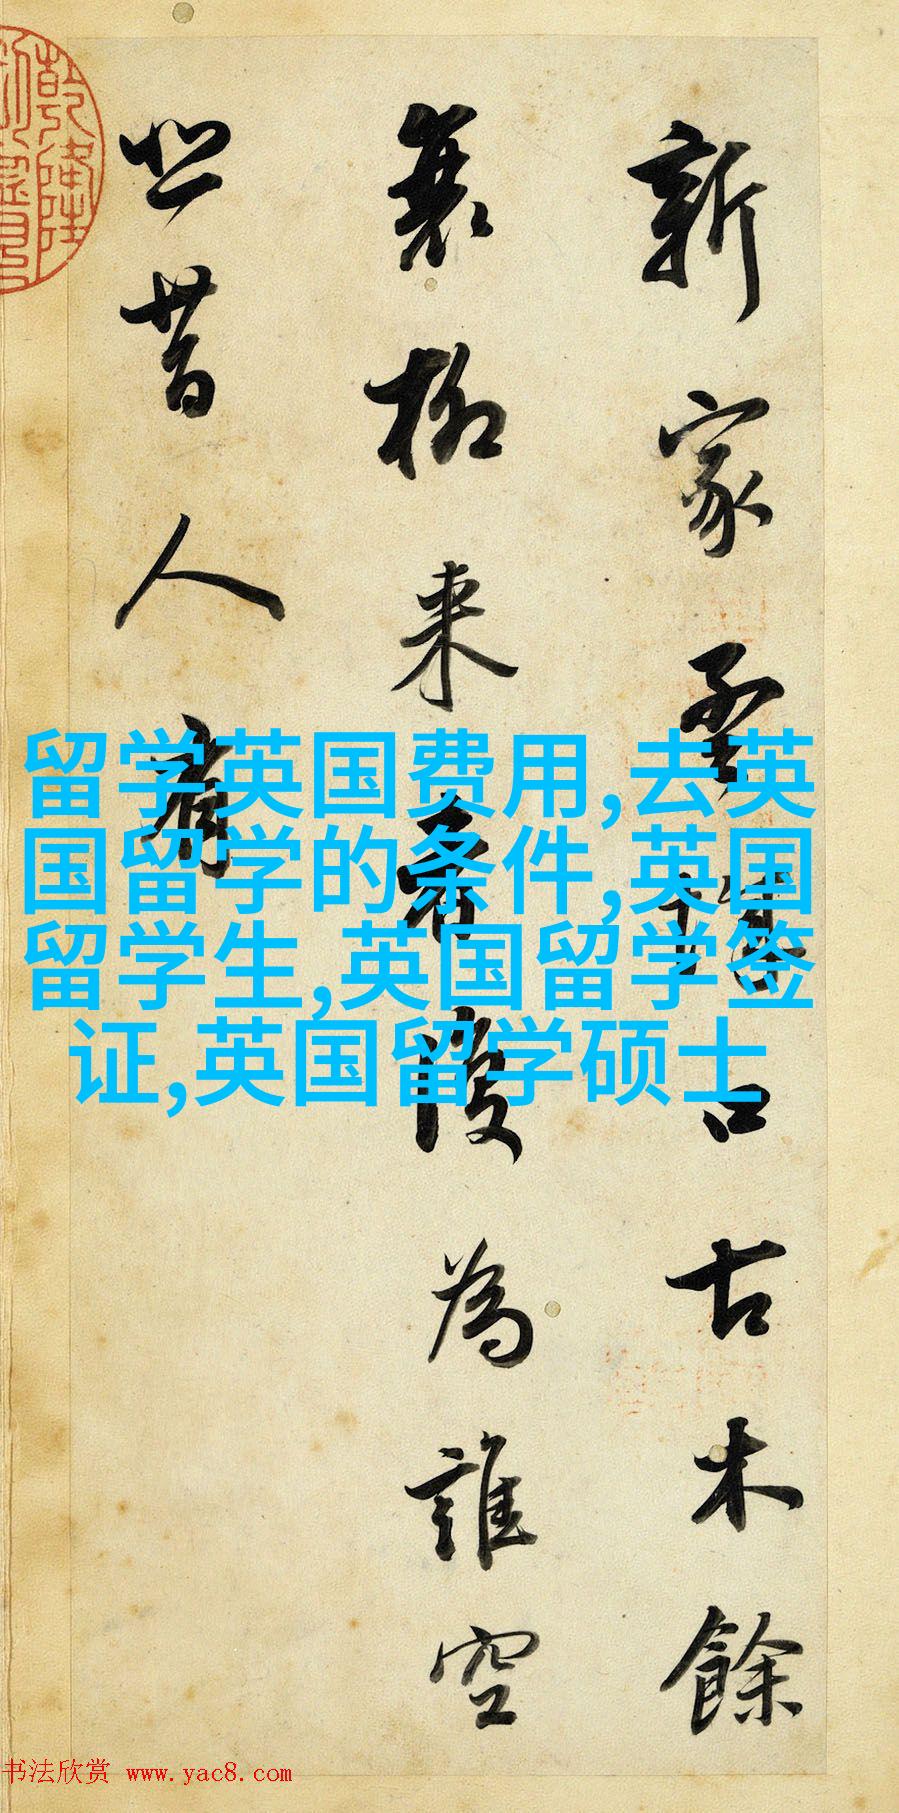 新家孟城口古木餘
衰柳来者復為誰空
悲昔人有
留学英国费用,去英
国留学的条件,英国
留学生,英国留学签
证,英国留学硕士
书法欣赏 www.yac8.com